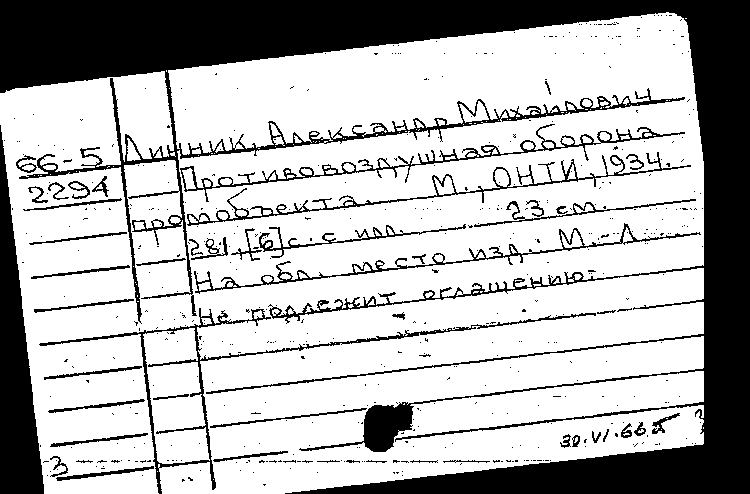 66-5 Линник, Александр Михайлович
2294 Противовоздушная оборона
промобъекта. М., ОНТИ, 1934.
281, [6] с. с илл. 23 см.
На обл. место изд.: М.-Л.
Не подлежит оглашению.
30.VI.66
3